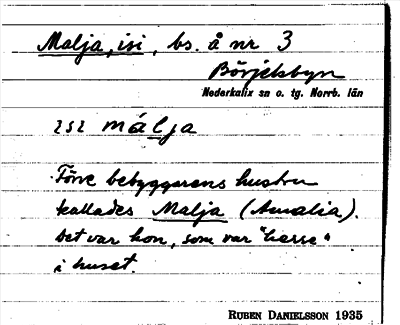 Malja, isi, bs. å nr 3
Börjelsbyn
Nederkalix sn o. tg. Norrb. län
ɪsɪ málja
Förre bebyggarens hustru
kallades Malja (Amalia).
Det var hon, som var "herre"
i huset.
RUBEN DANIELSSON 1935